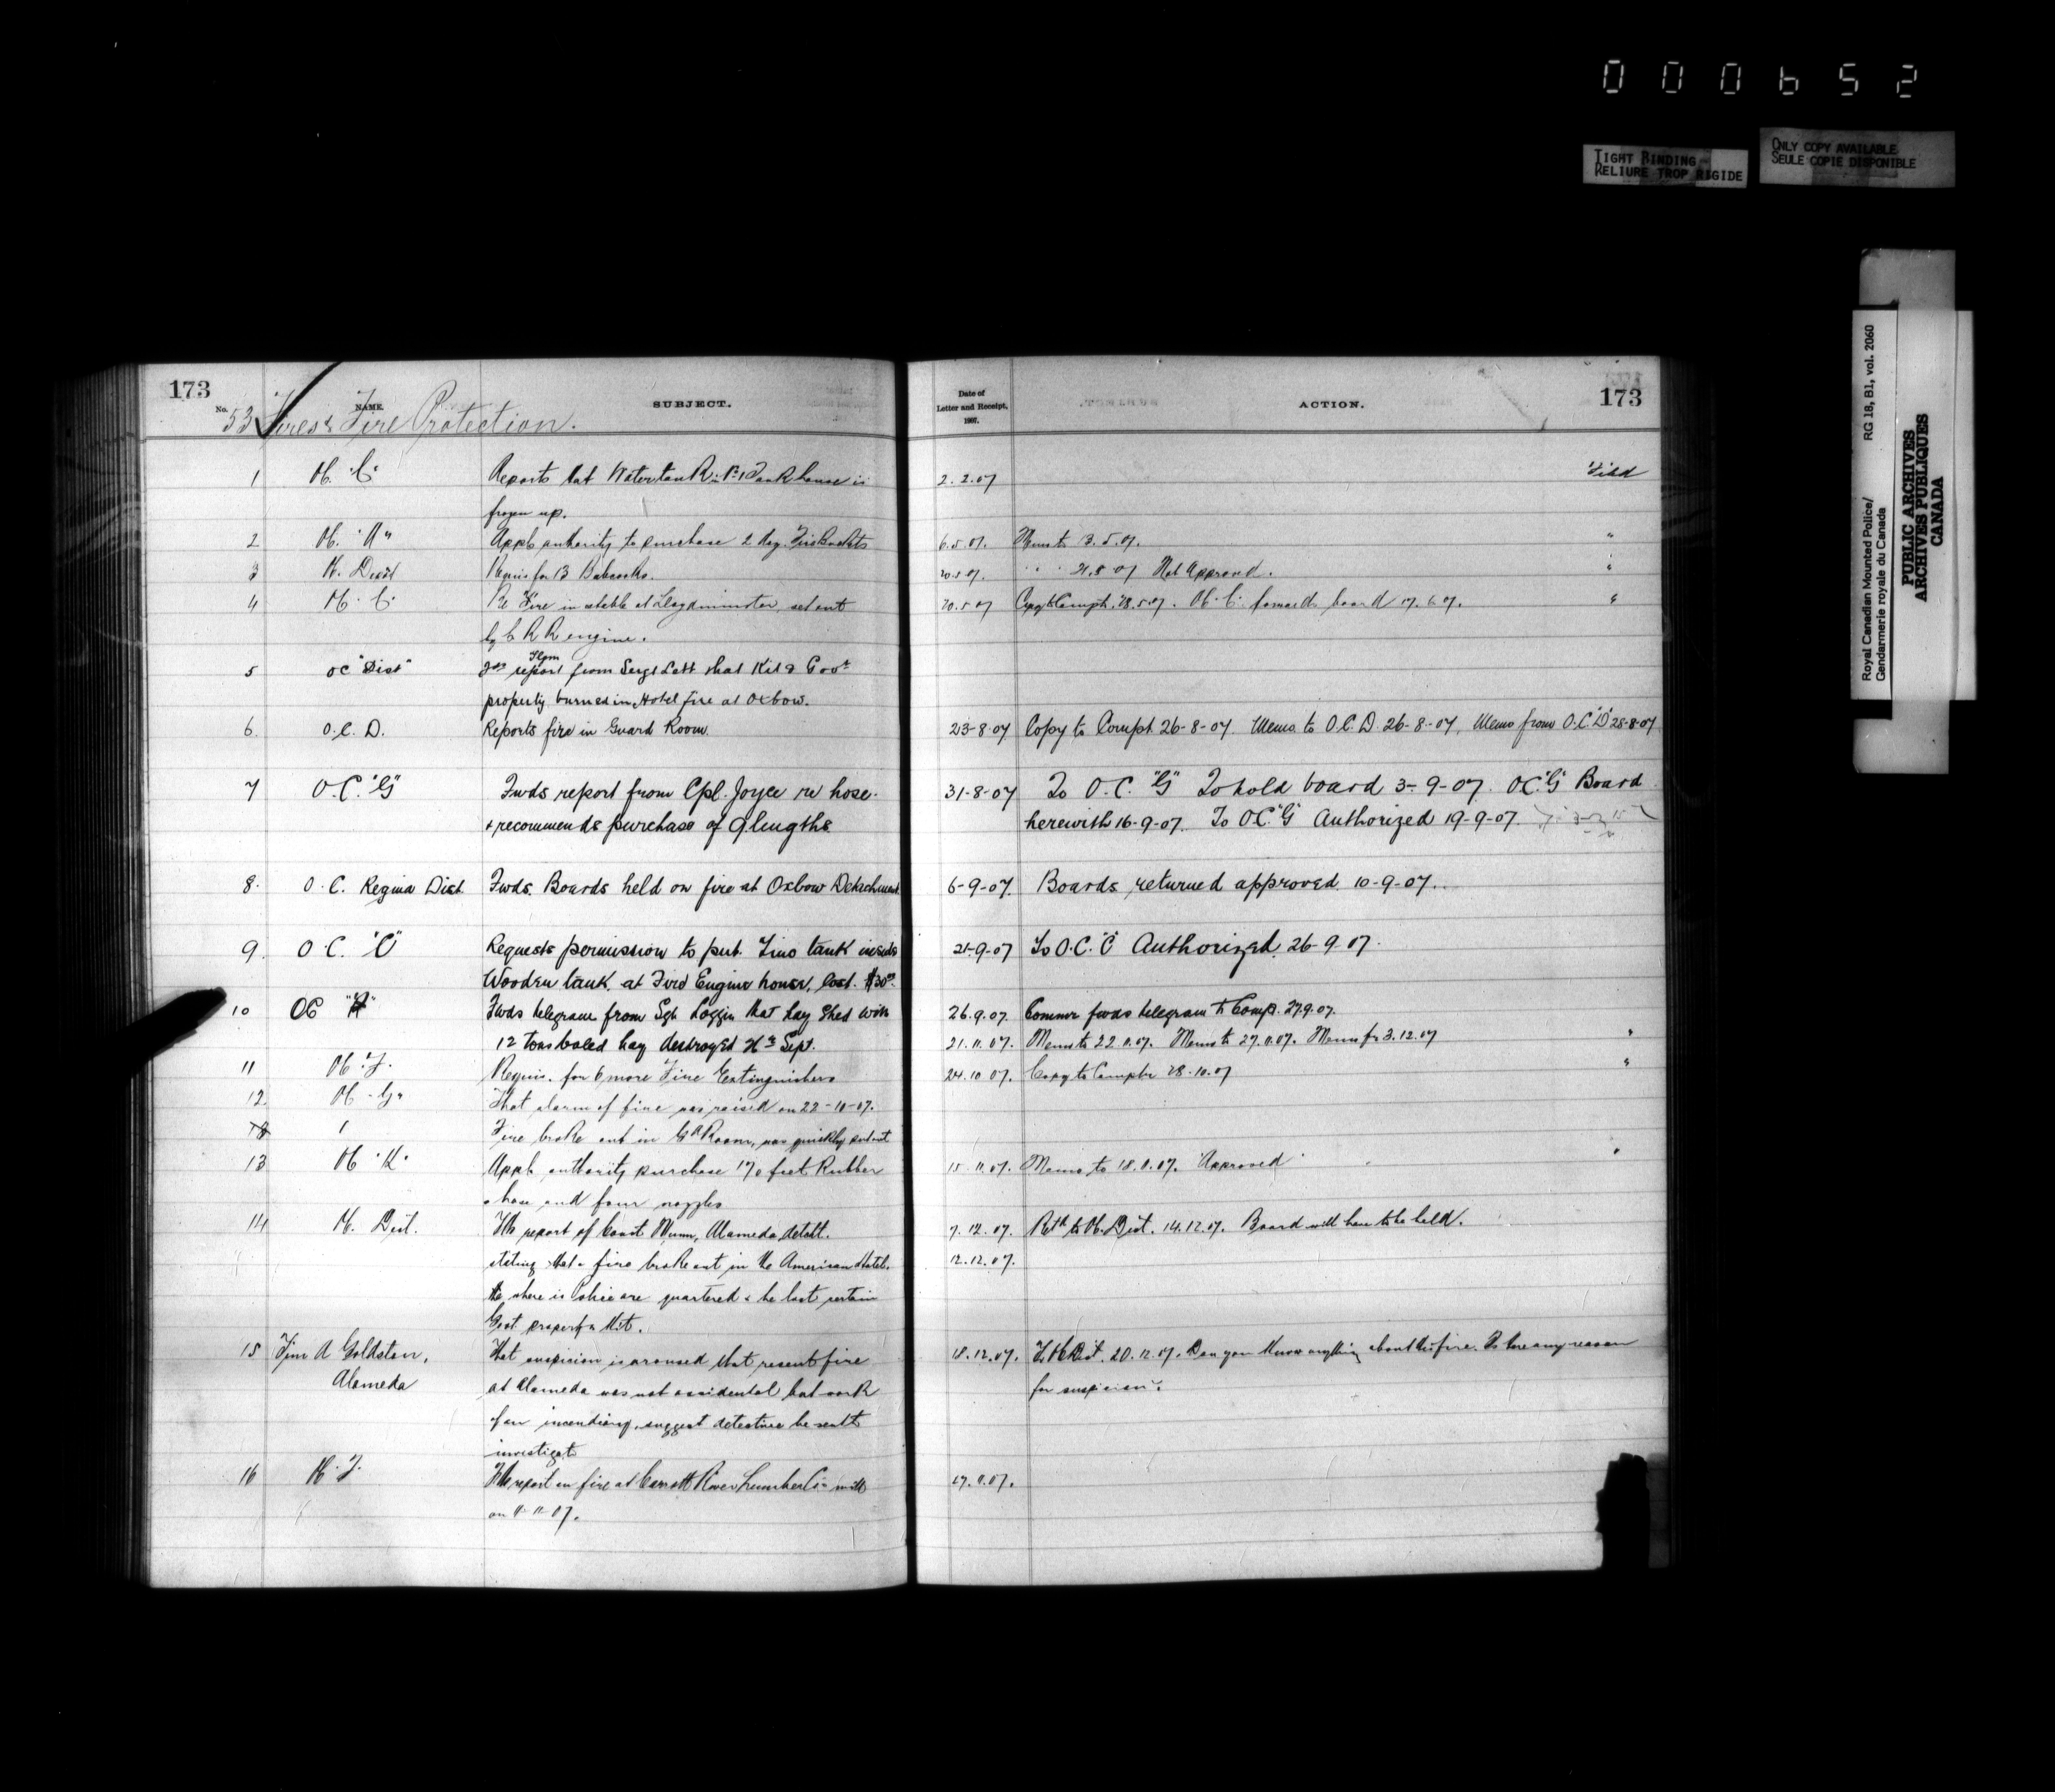 000652
TIGHT BINDING
RELIURE TROP RIGIDE
ONLY COPY AVAILABLE
SEULE COPIE DISPONIBLE
Royal Canadian Mounted Police/ RG 18, B1, vol. 2060
Gendarmerie royale du Canada
PUBLIC ARCHIVES
ARCHIVES PUBLIQUES
CANADA
173 No. NAME. SUBJECT. Date of Letter and Receipt, 1907. ACTION. 173
53 Fires & Fire Protection.
1 OC "C" Reports that Watertank in No 1 Tank house is 2.2.07 Filed
frozen up.
2 OC. "A" Appl. authority to purchase 2 doz. Fire Buckets 6.5.07. Memo to 13.5.07. "
3 OC. Dist Requis for 13 Babcocks. 20.5.07. " " 21.5.07 Not Approved. "
4 OC. C. Re Fire in stable at Lloydminster, set out 20.5.07 Copy to Compt. 28.5.07. OC. C. forwards board 17.6.07. "
by C N R engine.
5 OC "Dist" Fds report from Sergt Lett that Kit & Govt
property burned in Hotel fire at Oxbow.
6. O.C. D. Reports fire in Guard Room. 23-8-07 Copy to Compt 26-8-07. Memo to O.C.D. 26-8-07, Memo from O.C."D" 28-8-07
7 O.C. "G" Fwds report from Cpl. Joyce re hose. 31-8-07 To O.C. "G" To hold board 3-9-07. OC "G" Board
& recommends purchase of 9 lengths herewith 16-9-07. To OC "G" Authorized 19-9-07.
8. O.C. Regina Dist Fwds. Boards held on fire at Oxbow Detachment 6-9-07. Boards returned approved. 10-9-07.
9. O.C. "C" Requests permission to put Zinc tank inside 21-9-07 To O.C. "C" Authorized, 26-9-07.
Wooden tank, at Fire Engine house, cost. $30.00
10 OC Fwds telegram from Sgt Loggin that hay shed with 26.9.07. Commr fwds telegram to Comp. 27.9.07.
12 tons baled hay destroyed 26th Sept. 21.11.07. Memo to 22.11.07. Memo to 27.11.07. Memo fr 3.12.07 "
11 OC. F. Requis. for 6 more Fire Extinguishers 24.10.07. Copy to Comptr 28.10.07 "
12. OC. G. That alarm of fire was raised on 22-10-07.
Fire broke out in Gd Room, was quickly put out
13 OC "K" Appl. authority purchase 170 feet Rubber 15.11.07. Memo to 18.11.07. "Approved" "
hose and four nozzles
14 OC. Dist. Fds report of Const Wunn, Alameda, detatt. 7.12.07. Retd to OC. Dist. 14.12.07. Board will have to be held.
stating that a fire broke out in the American Hotel. 12.12.07.
where Police are quartered & he lost certain
Govt property & kit.
15 A Goldston, That suspicion is aroused that recent fire 18.12.07. To OC Dist. 20.12.07. Can you know anything about this fire. Is there any reason
Alameda at Alameda was not accidental but work for suspicion?
of an incendiary, suggest detective be sent to
investigate
16 OC. F. Fds report on fire at Carrott River Lumber Co mill 27.11.07.
on 11-11-07.